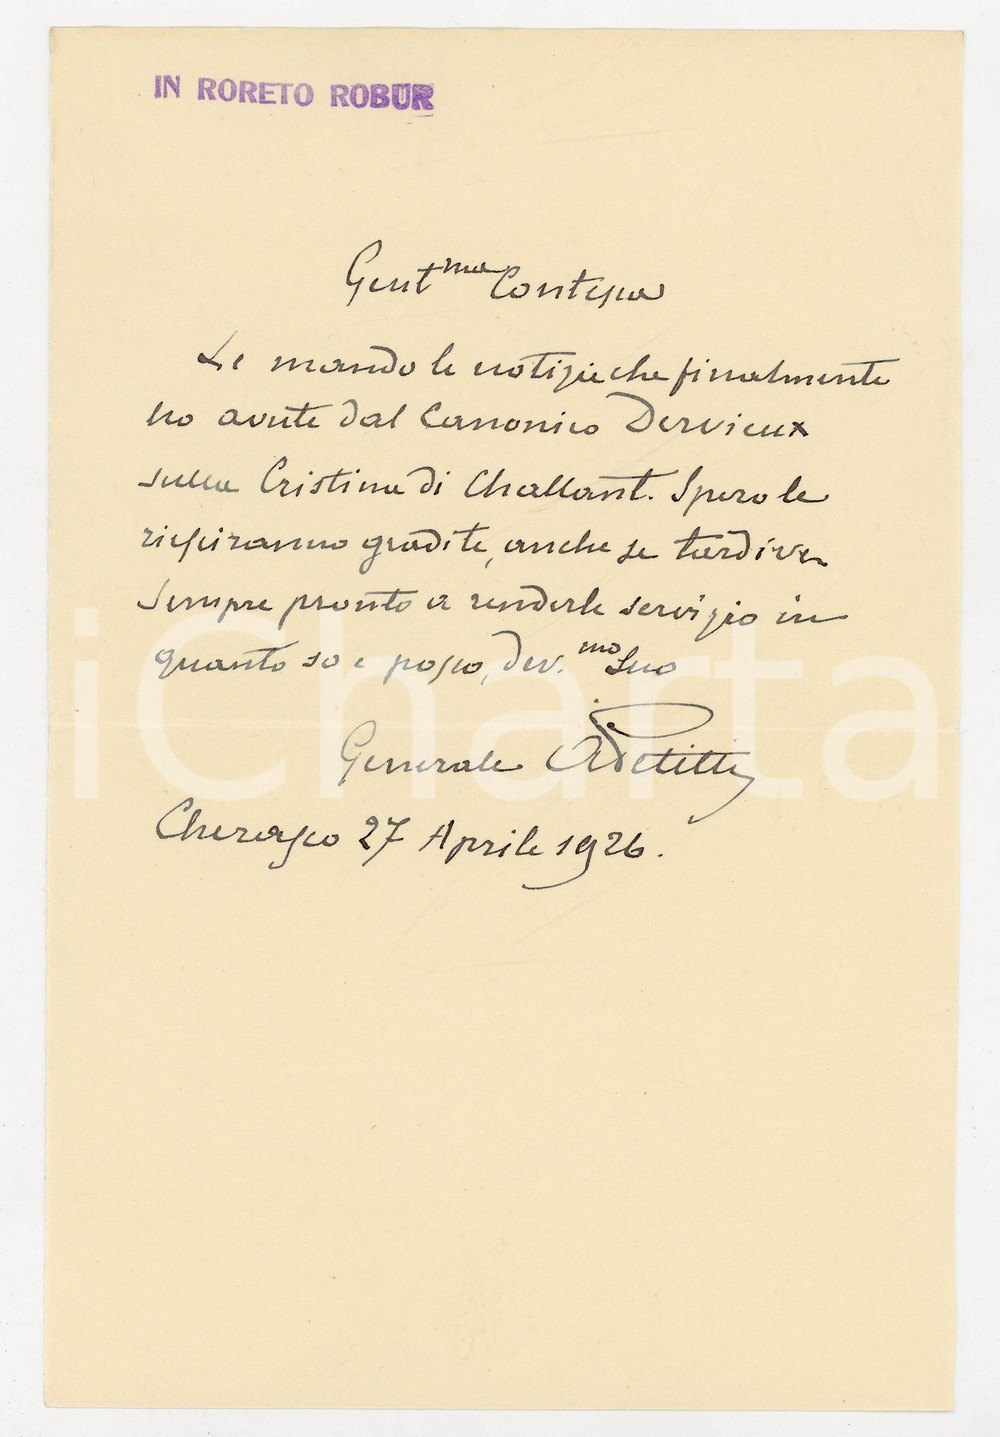 IN RORETO ROBUR
Gent.ma Contessa
Le mando le notizie che finalmente
ho avute dal Canonico Dervieux
sulla Cristina di Challant. Spero le
riesciranno gradite, anche se tardive
Sempre pronto a renderle servizio in
quanto so e posso, dev.mo Suo
Generale A Petitti
Cherasco 27 Aprile 1926.
iCharta